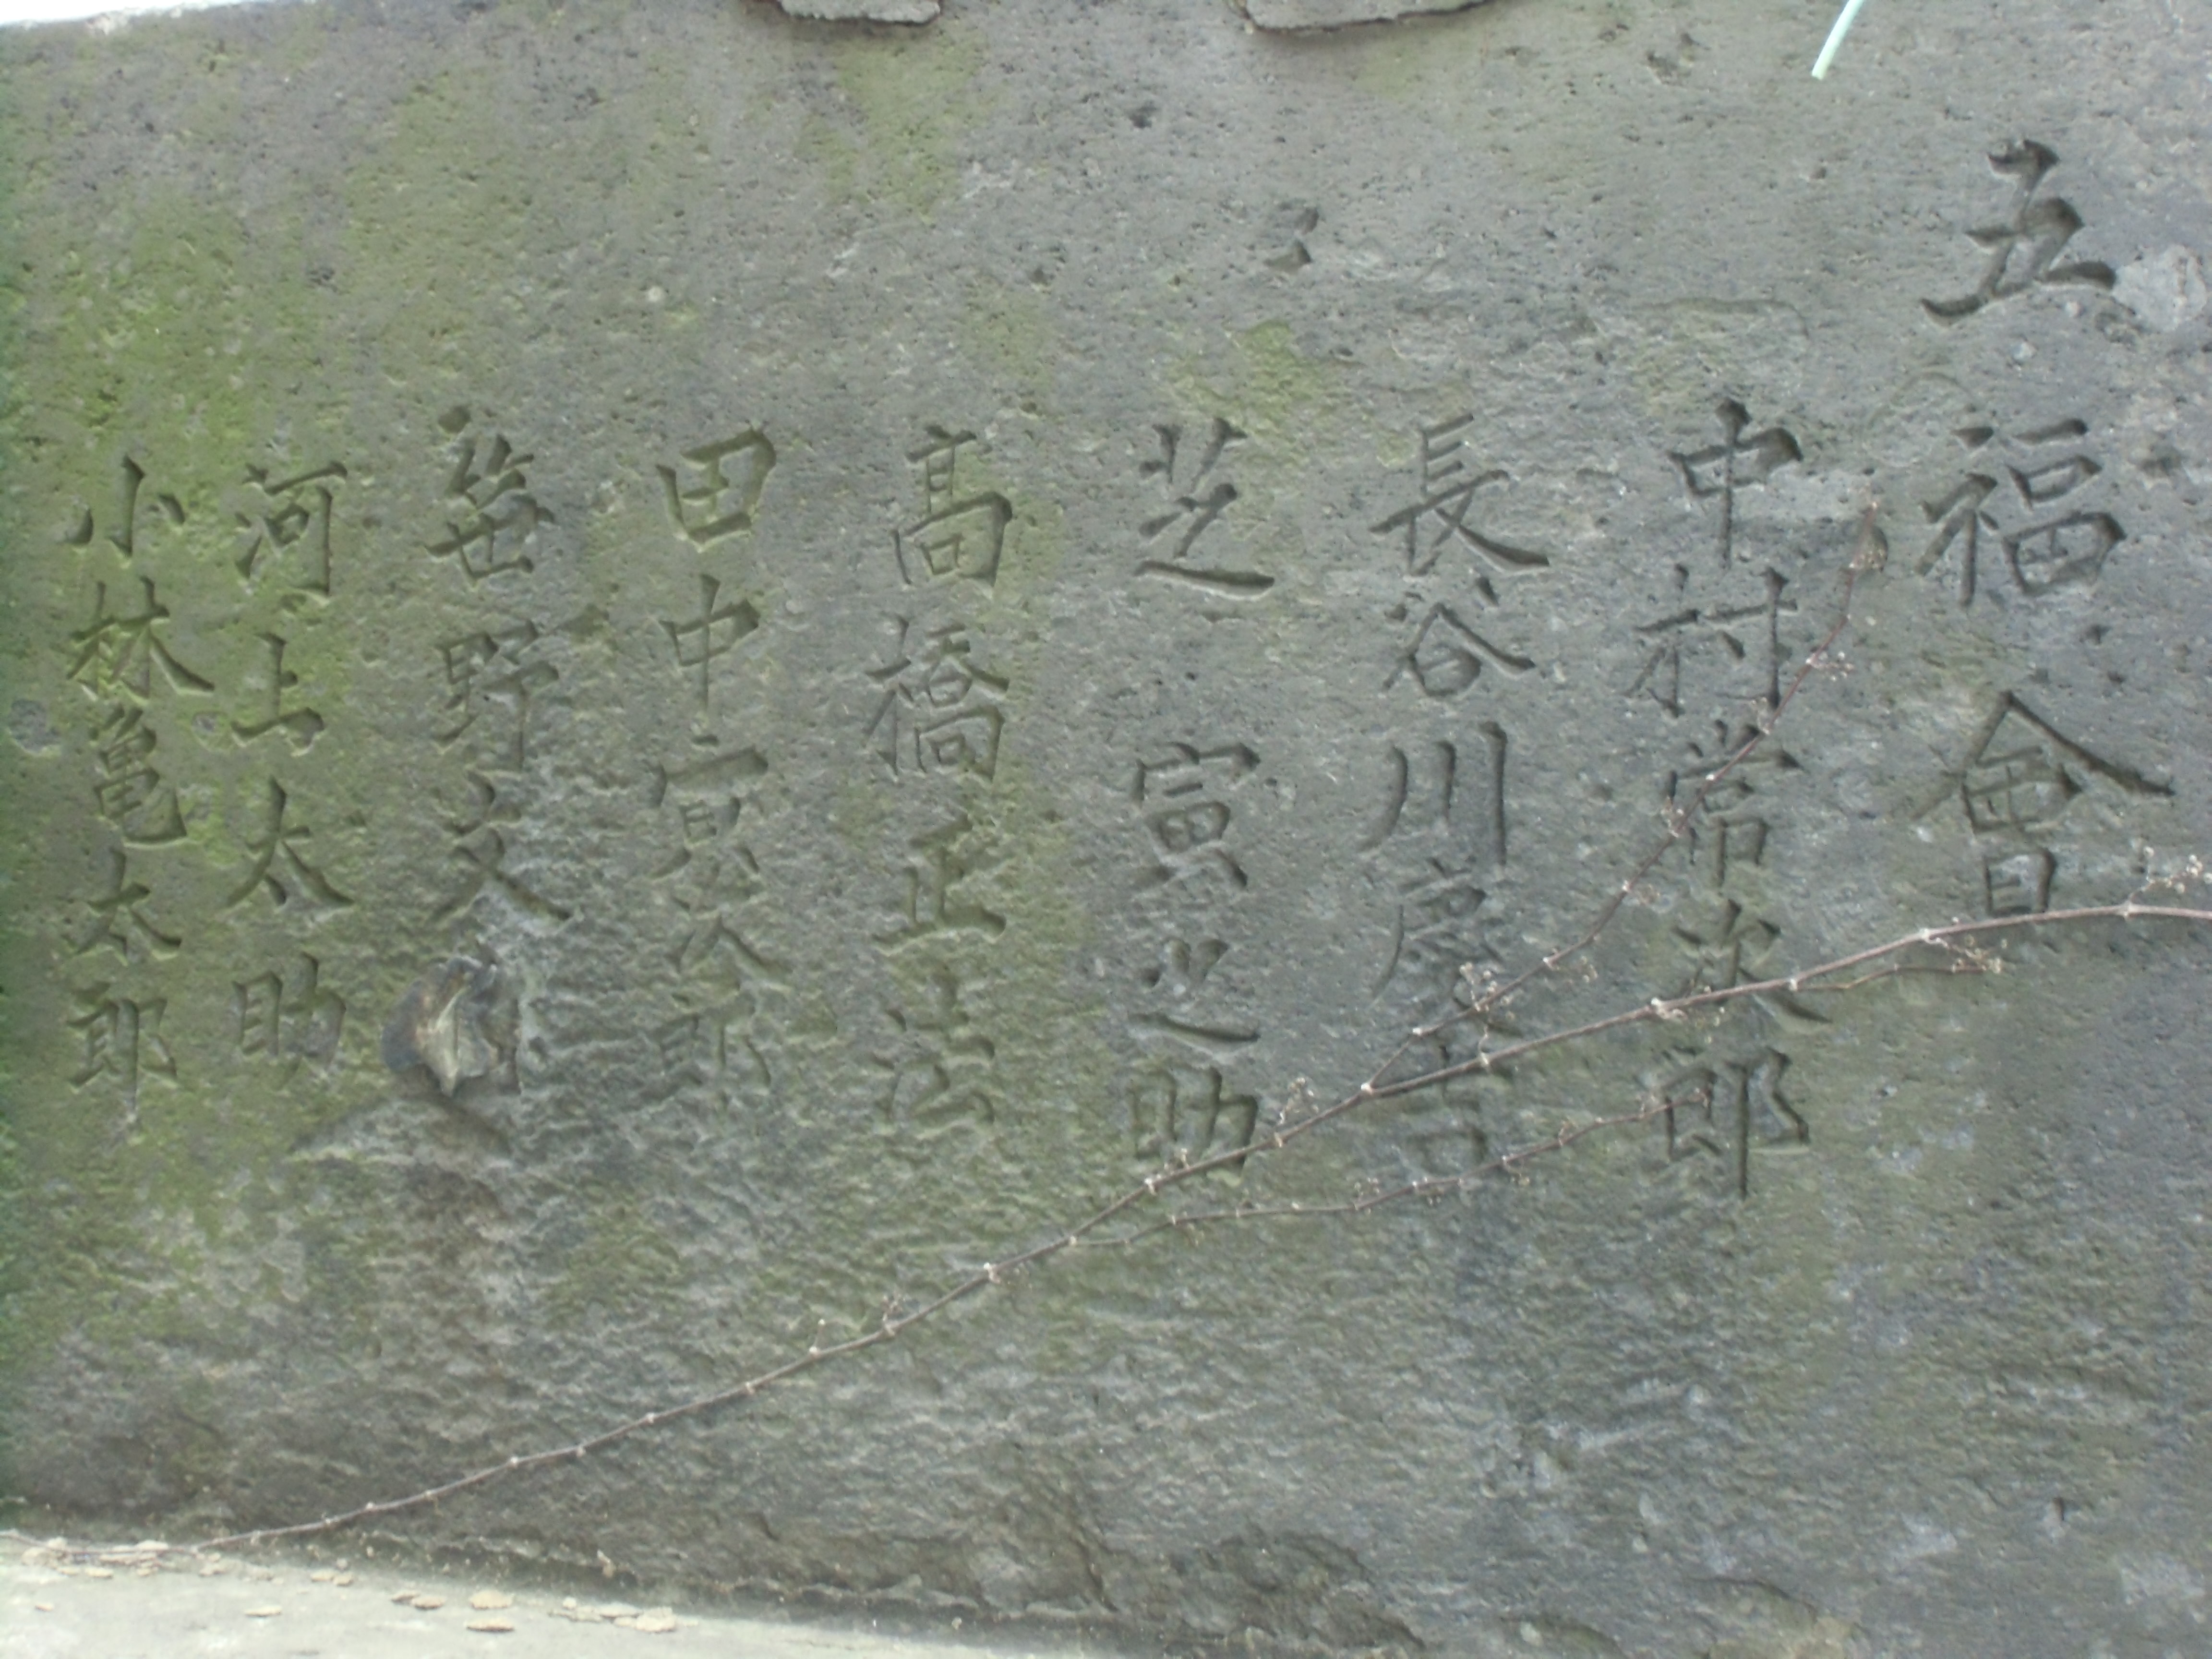 五福會
中村常次郎
長谷川慶吉
芝 寅之助
髙橋正法
田中寅次郎
笹野文
河上太助
小林亀太郎